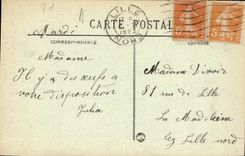 31
CARTE POSTALE
LILLE
NORD
CORRESPONDANCE
ADRESSE
Mardi
Madame
Il y a des œufs a
votre disposition
Julia
Madame
81 rue de Lille
La Madeleine
lez Lille Nord